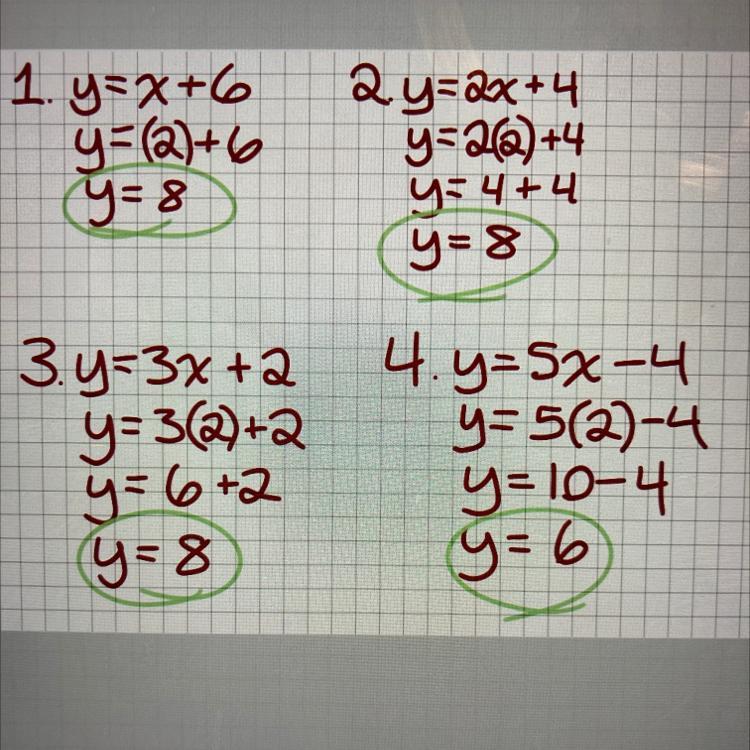 1. y=x+6
y=(2)+6
y=8
2. y=2x+4
y=2(2)+4
y=4+4
y=8
3. y=3x+2
y=3(2)+2
y=6+2
y=8
4. y=5x-4
y=5(2)-4
y=10-4
y=6